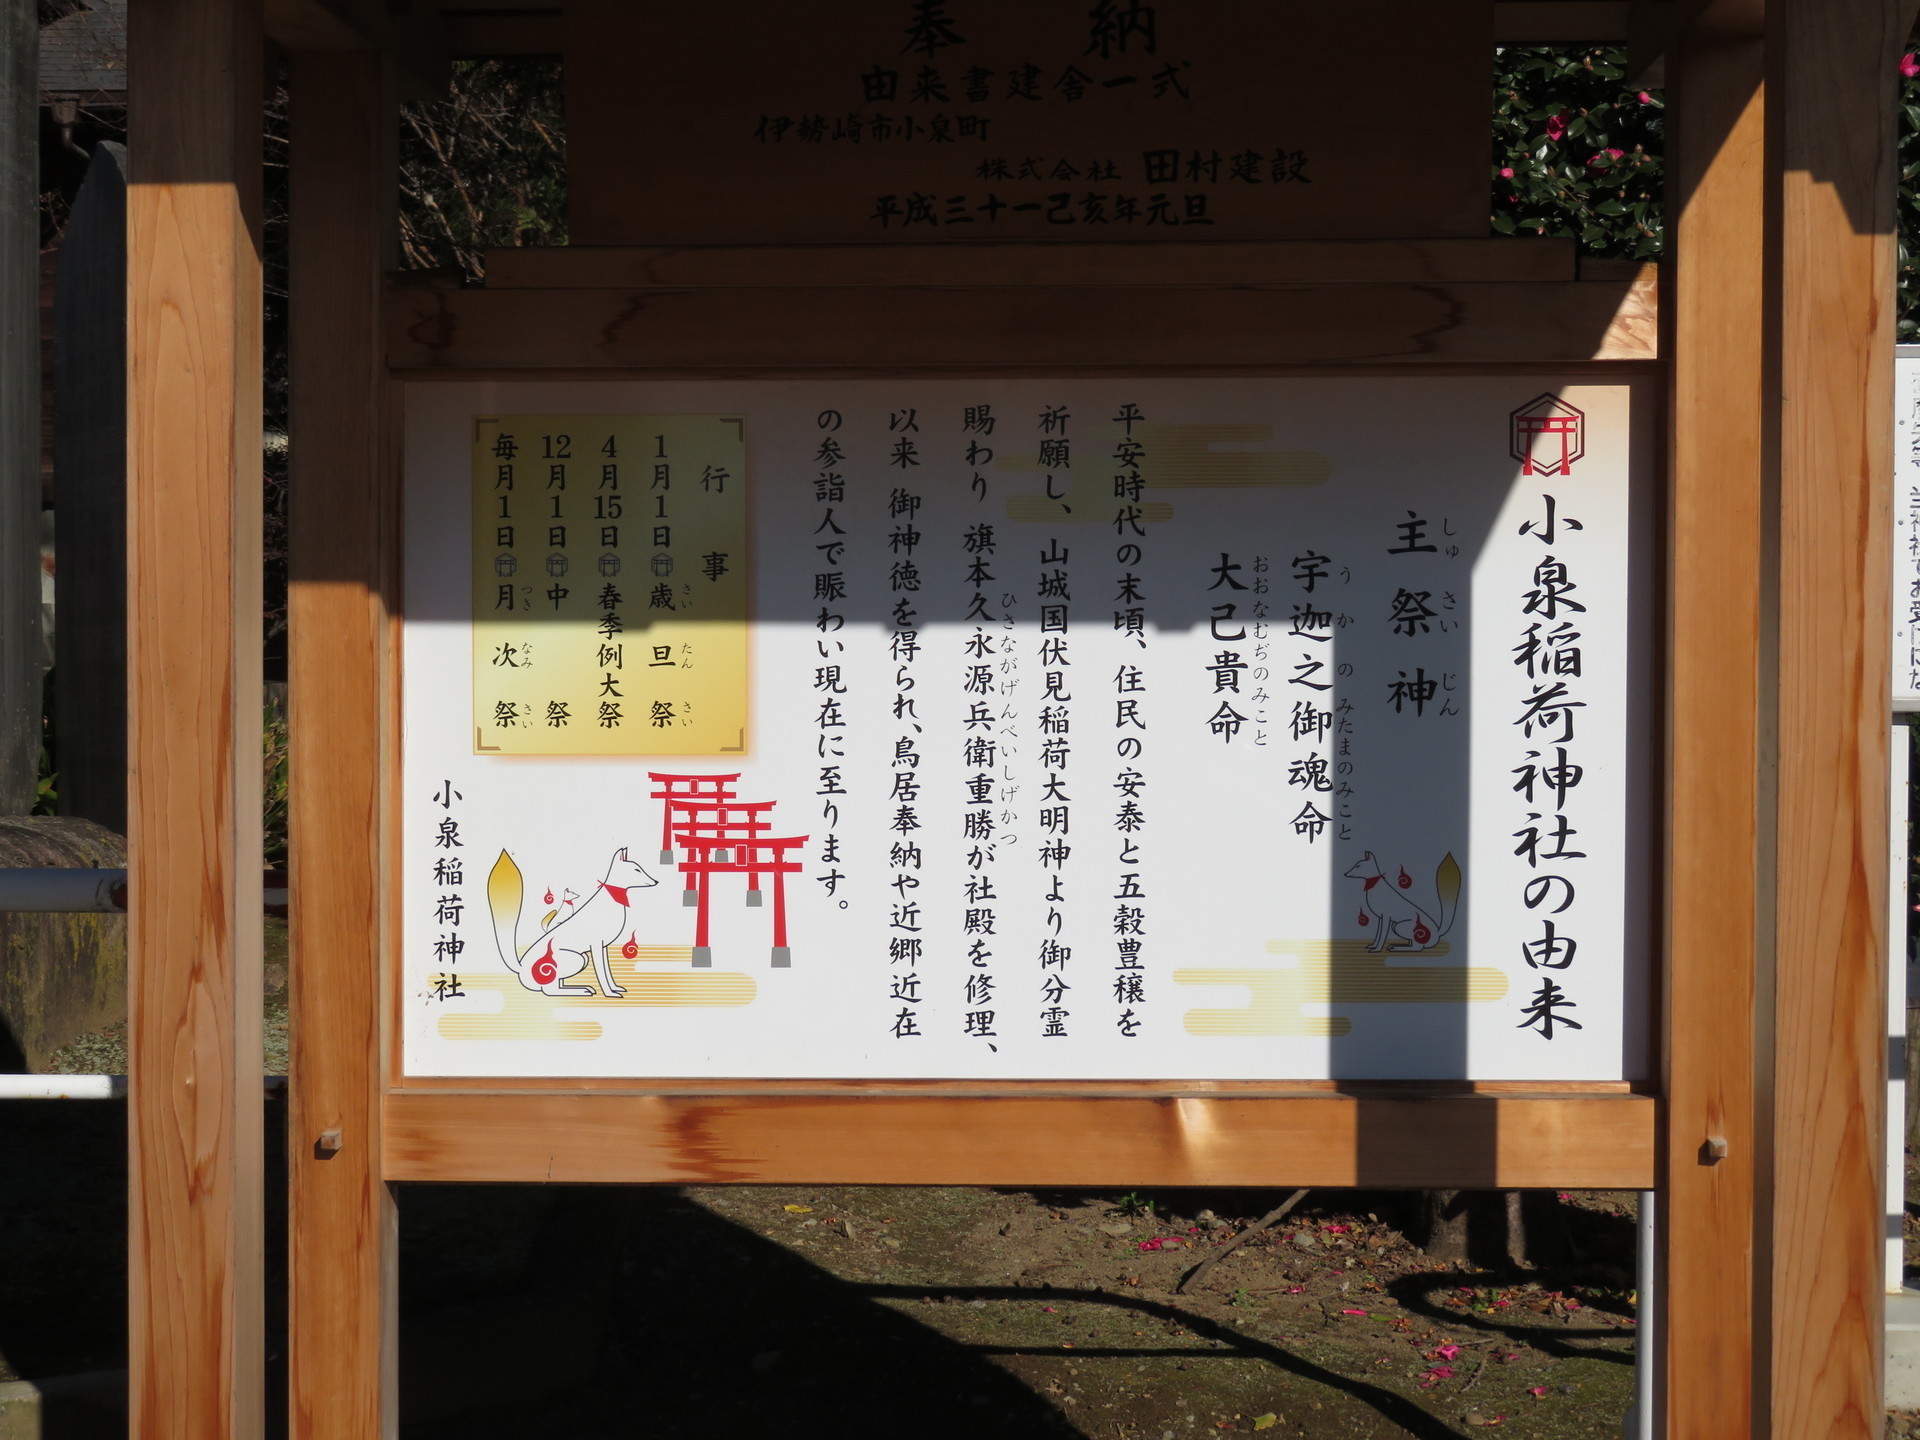 奉納
由来書建舎一式
伊勢崎市小泉町
株式会社 田村建設
平成三十一己亥年元旦
小泉稲荷神社の由来
主祭神
しゅさいじん
宇迦之御魂命
うかのみたまのみこと
大己貴命
おおなむぢのみこと
平安時代の末頃、住民の安泰と五穀豊穣を
祈願し、山城国伏見稲荷大明神より御分霊
賜わり 旗本久永源兵衛重勝が社殿を修理、
ひさながげんべいしげかつ
以来 御神徳を得られ、鳥居奉納や近郷近在
の参詣人で賑わい現在に至ります。
行事
1月1日 歳旦祭
さいたんさい
4月15日 春季例大祭
12月1日 中祭
毎月1日 月次祭
つきなみさい
小泉稲荷神社